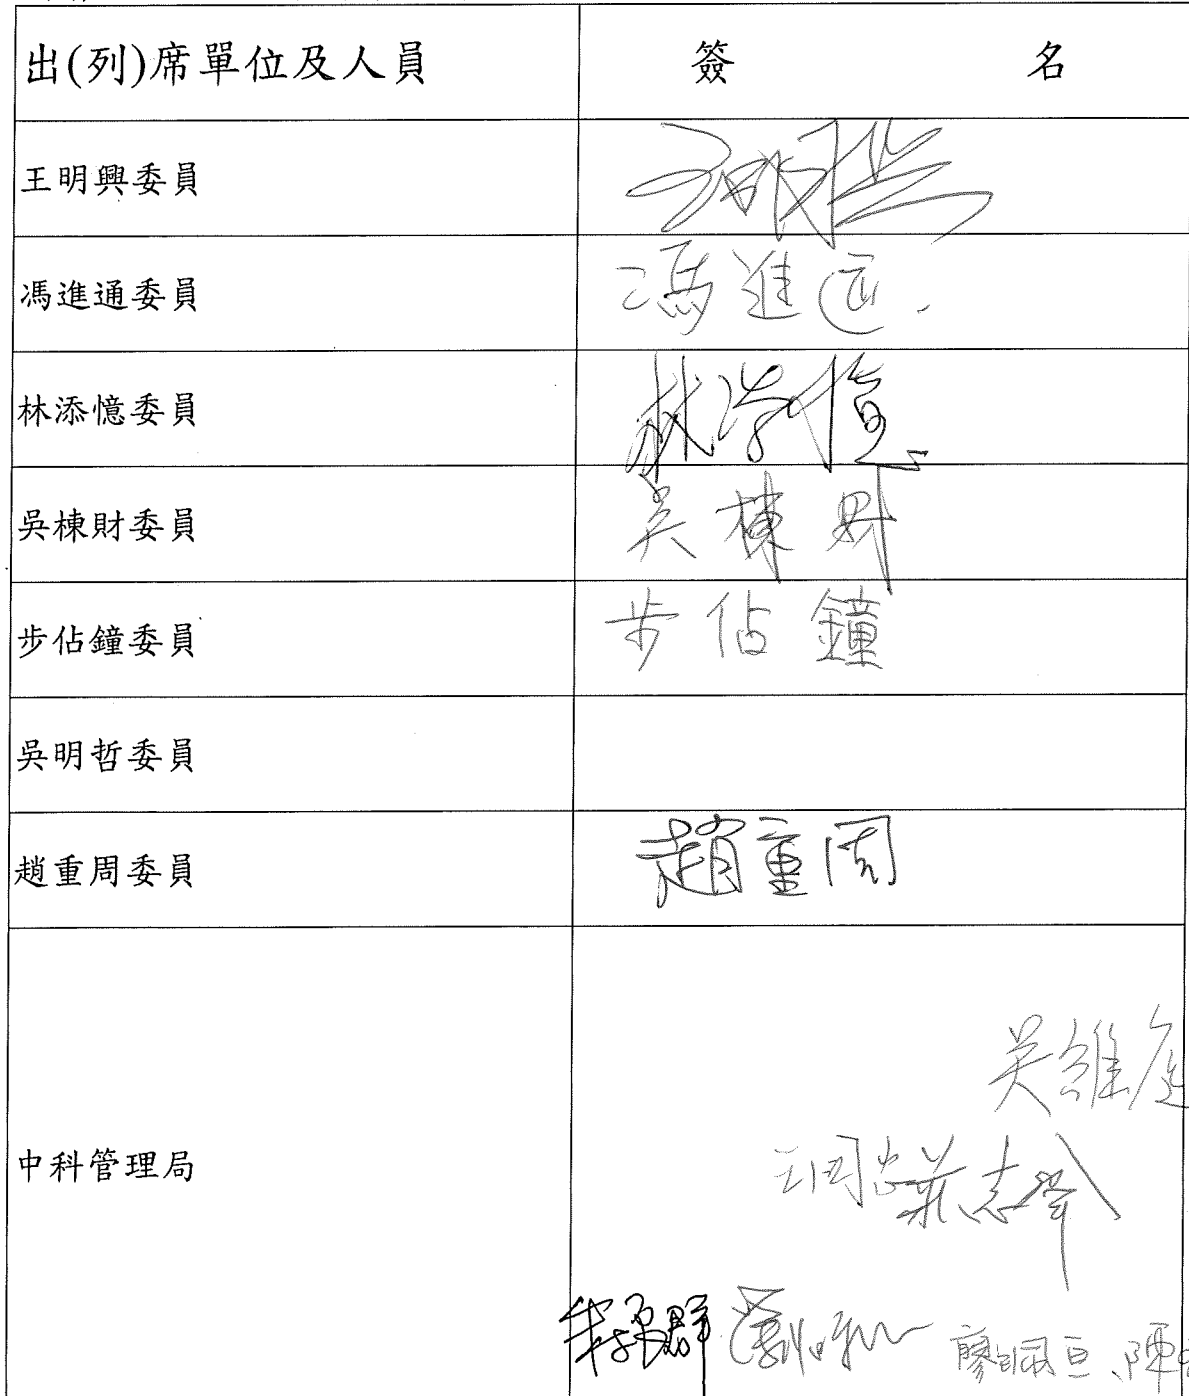 出(列)席單位及人員 簽 名
王明興委員 王明興
馮進通委員 馮進通
林添憶委員 林添憶
吳棟財委員 吳棟財
步佔鐘委員 步佔鐘
吳明哲委員
趙重周委員 趙重周
吳維庭
中科管理局
莊志
群
廖 陳